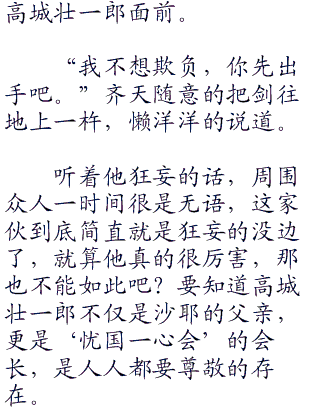 高城壮一郎面前。
“我不想欺负，你先出
手吧。”齐天随意的把剑往
地上一杵，懒洋洋的说道。
听着他狂妄的话，周围
众人一时间很是无语，这家
伙到底简直就是狂妄的没边
了，就算他真的很厉害，那
也不能如此吧？要知道高城
壮一郎不仅是沙耶的父亲，
更是‘忧国一心会’的会
长，是人人都要尊敬的存
在。